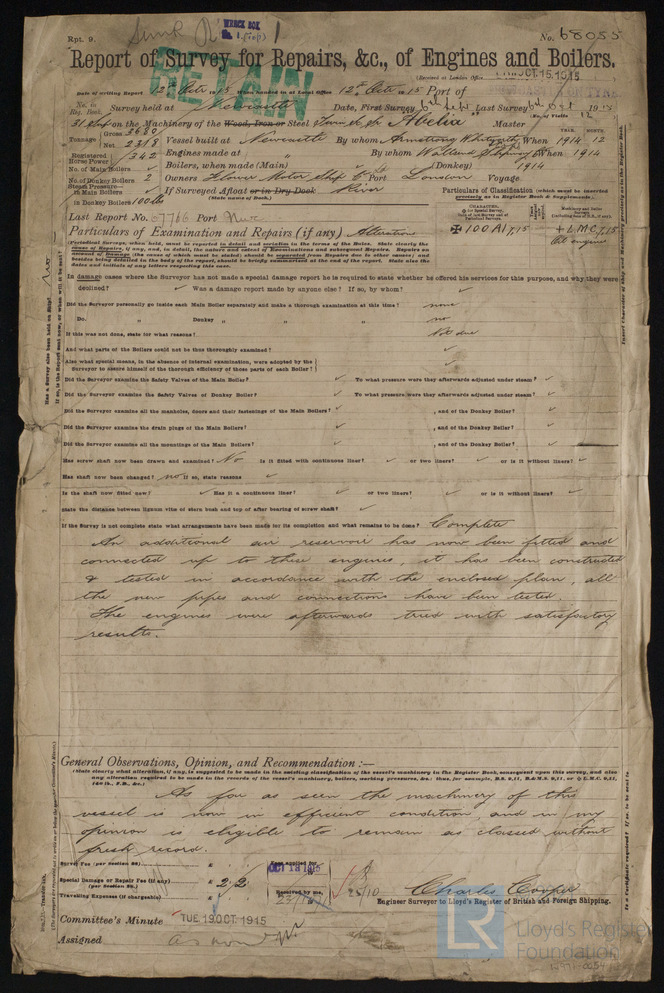 Rpt. 9.
WRECK BOX
No. 68055
Report of Survey for Repairs, &c., of Engines and Boilers.
(Received at London Office OCT. 15. 1915
RETAIN
Date of writing Report 12th Octr 1915 When handed in at Local Office 12th Octr 1915 Port of
No. in Reg. Book. Survey held at Newcastle Date, First Survey 6th Sep Last Survey Oct 1915
(No. of Visits 12
31 Sup on the Machinery of the Wood, Iron or Steel "Abelia" Master
Tonnage Gross 3680 Net 2318
Vessel built at Newcastle By whom Armstrong Whitworth When 1914 12
YEAR. MONTH.
Registered Horse Power 342 Engines made at " By whom Wallsend Slipway When 1914
No. of Main Boilers ✓ Boilers, when made (Main) ✓ (Donkey) 1914
No. of Donkey Boilers 2 Owners Flower Motor Ship Co Ld Port London Voyage
Steam Pressure— in Main Boilers ✓ If Surveyed Afloat or in Dry Dock River
(State name of Dock.)
in Donkey Boilers 100 lbs
Particulars of Classification (which must be inserted precisely as in Register Book & Supplements).
Last Report No. 67766 Port Nwc
✠ 100 A1 7,15 + LMC 7,15
Oil engine
Particulars of Examination and Repairs (if any) Alterations
(Periodical Surveys, when held, must be reported in detail and seriatim in the terms of the Rules. State clearly the
In damage cases where the Surveyor has not made a special damage report he is required to state whether he offered his services for this purpose, and why they were
declined? ✓ Was a damage report made by anyone else? If so, by whom? ✓
Did the Surveyor personally go inside each Main Boiler separately and make a thorough examination at this time? none
Do. " Donkey " " " no
If this was not done, state for what reasons? Not due
And what parts of the Boilers could not be thoroughly examined? ✓
Also what special means, in the absence of internal examination, were adopted by the
Surveyor to assure himself of the thorough efficiency of those parts of each Boiler? ✓
Did the Surveyor examine the Safety Valves of the Main Boiler? ✓ To what pressure were they afterwards adjusted under steam? ✓
Did the Surveyor examine the Safety Valves of Donkey Boiler? ✓ To what pressure were they afterwards adjusted under steam? ✓
Did the Surveyor examine all the manholes, doors and their fastenings of the Main Boilers? ✓ , and of the Donkey Boiler? ✓
Did the Surveyor examine the drain plugs of the Main Boilers? ✓ , and of the Donkey Boiler? ✓
Did the Surveyor examine all the mountings of the Main Boilers? ✓ , and of the Donkey Boiler? ✓
Has screw shaft now been drawn and examined? No Is it fitted with continuous liner? ✓ or two liners? ✓ or is it without liners? ✓
Has shaft now been changed? no If so, state reasons ✓
Is the shaft now fitted new? ✓ Has it a continuous liner? ✓ or two liners? ✓ or is it without liners? ✓
State the distance between lignum vitæ of stern bush and top of after bearing of screw shaft? ✓
If the Survey is not complete state what arrangements have been made for its completion and what remains to be done? Complete
An additional air reservoir has now been fitted and
connected up to these engines, it has been constructed
& tested in accordance with the enclosed plan, all
the new pipes and connections have been tested.
The engines were afterwards tried with satisfactory
results.
General Observations, Opinion, and Recommendation:—
(State clearly what alteration, if any, is suggested to be made in the existing classification of the vessel's machinery in the Register Book, consequent upon this survey, and also
As far as seen the machinery of this
vessel is now in efficient condition, and in my
opinion is eligible to remain as classed without
fresh record.
Survey Fee (per section 28) £
Fees applied for
OCT 18 1915
Special Damage or Repair Fee (if any) £ 2/2
(per Section 28.)
Travelling Expenses (if chargeable) £
Received by me,
25/10
Charles Cooper
Engineer Surveyor to Lloyd's Register of British and Foreign Shipping.
Committee's Minute TUE. 19 OCT. 1915
Assigned as now
LR
Lloyd's Register
Foundation